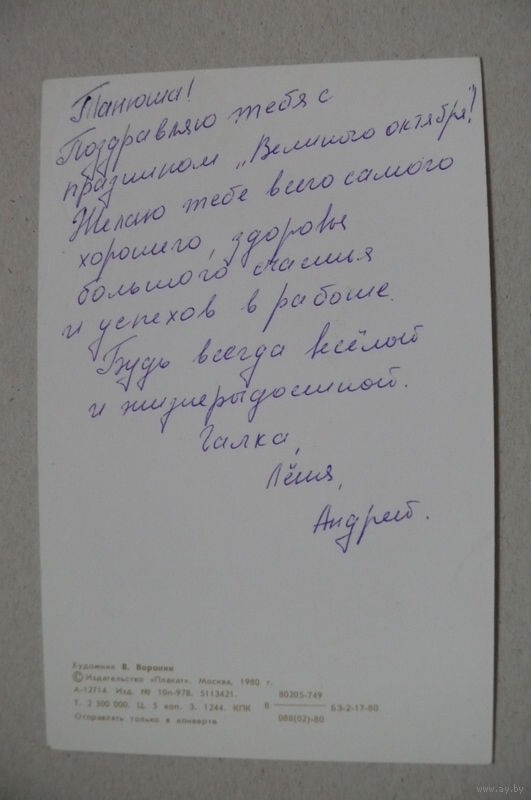 Танюша!
Поздравляю тебя с
праздником „Великого октября"!
Желаю тебе всего самого
хорошего, здоровья
большого счастья
и успехов в работе.
Будь всегда весёлой
и жизнерадостной.
Галка,
Лёня,
Андрей.
Художник В. Воронин
© Издательство «Плакат». Москва, 1980 г.
А-12714. Изд. № 10п-978. 5113421.
Т. 2 300 000. Ц. 5 коп. З. 1244. КПК
Отправлять только в конверте
80205-749
В ——— БЗ-2-17-80
088(02)-80
www.ay.by